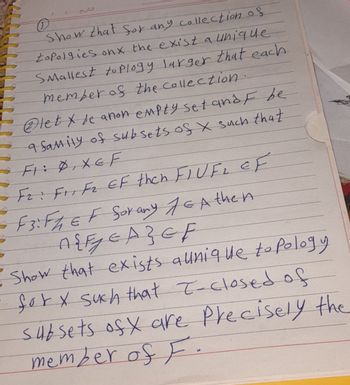 ①
Show that for any collection of
topolgies on x the exist a unique
smallest toplogy larger that each
member of the collection.
② let X be a non empty set and F be
a family of subsets of X such that
F1: Ø, X ∈ F
F2: F1, F2 ∈F then F1UF2 ∈F
F3: Fλ ∈ F for any λ ∈ A then
∩{Fλ ∈ A} ∈ F
Show that exists a unique topology
for X such that τ-closed of
subsets of X are Precisely the
member of F.